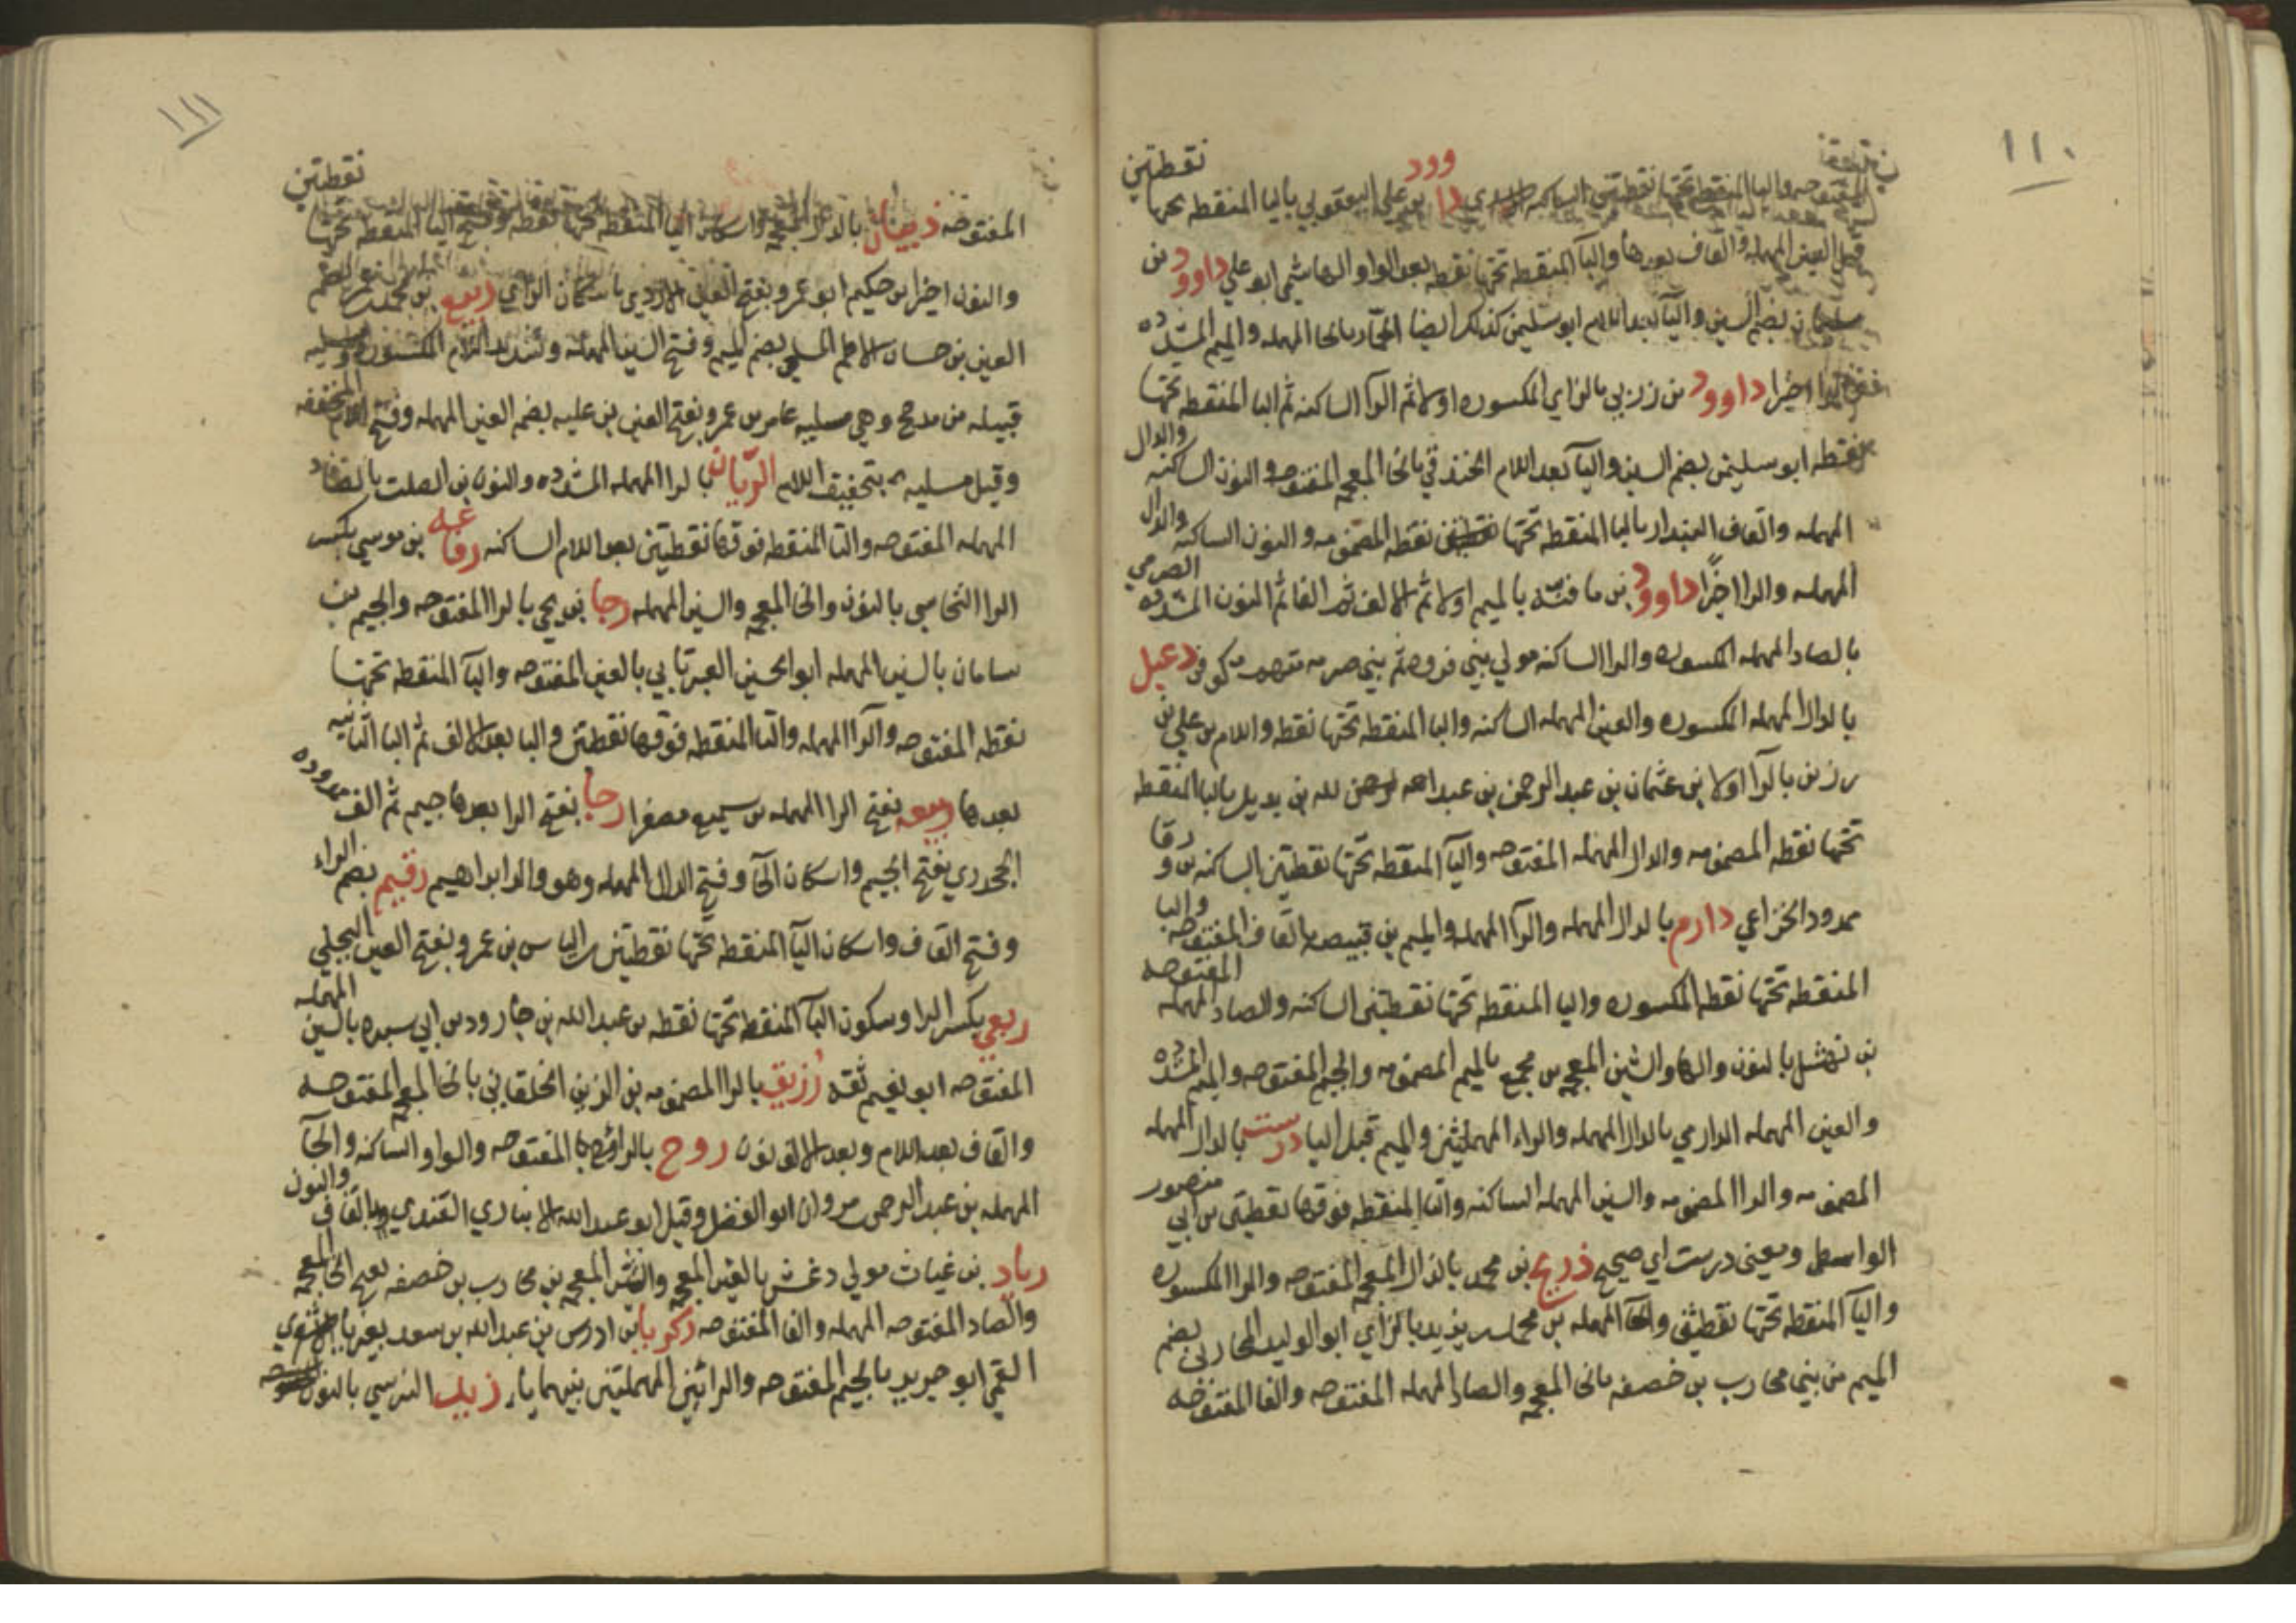 ١١٠
نقطتين
المفتوحه واليا المنقطه تحتها نقطتين الساكنه داوود بن علي اليعقوبي باليا المنقطه تحتها
قبل العين المهمله والقاف بعدها والبآ المنقطه تحتها نقطه بعد الواو الهاشمي ابو علي داوود بن
سليمان بضم السين واليآ بعد اللام ابو سليمن كذلك ايضا الحمّار بالحا المهمله والميم المشدده
والرا اخيرا داوود بن زربي بالزاي المكسوره اولا ثم الرآ الساكنه ثم البا المنقطه تحتها
نقطه ابو سليمن بضم السين واليآ بعد اللام الخندقي بالخا المعجمه المفتوحه والنون الساكنه والدال
المهمله والقاف البندار بالبا المنقطه تحتها نقطه المضمومه والنون الساكنه والدال
المهمله والرا اخرًا داوود بن مافنّه بالميم اولا ثم الالف ثم الفا ثم النون المشدده الصرمي
بالصاد المهمله المكسوره والرا الساكنه مولي بني قره ثم بني صرمه منهم كوفي دعبل
بالدال المهمله المكسوره والعين المهمله الساكنه والبا المنقطه تحتها نقطه واللام بن علي بن
رزين بالرآ اولا بن عثمان بن عبد الرحمن بن عبد الله بن بديل بالبا المنقطه
تحتها نقطه المضمومه والدال المهمله المفتوحه واليآ المنقطه تحتها نقطتين الساكنه بن ورقا
ممدود الخزاعي دارم بالدال المهمله والرآ المهمله والميم بن قبيصه بالقاف المفتوحه والبا
المنقطه تحتها نقطه المكسوره واليا المنقطه تحتها نقطتين الساكنه والصاد المهمله المفتوحه
بن نهشل بالنون والها والشين المعجمه بن مجمع بالميم المضمومه والجيم المفتوحه والميم المشدده
والعين المهمله الدارمي بالدال المهمله والراء المهملتين والميم قبل اليا درست بالدال المهمله
المضمومه والرا المضمومه والسين المهمله الساكنه والتا المنقطه فوقها نقطتين بن ابي منصور
الواسطي ومعنى درست اي صحيح ذريح بن محمد بالذال المعجمه المفتوحه والرا المكسوره
واليآ المنقطه تحتها نقطتين والحآ المهمله بن محمد بن يزيد بالزاي ابو الوليد المحاربي بضم
الميم من بني محارب بن خصفه بالخا المعجمه والصاد المهمله المفتوحه والفا المفتوحه
١١١
نقطتين
المفتوحه ذبيان بالذال المعجمه واسكان البا المنقطه تحتها نقطه وفتح اليا المنقطه تحتها
والنون اخيرا بن حكيم ابو عمرو بفتح العين الازدي باسكان الزاي ربيع بن محمد بن عمر بضم
العين بن حسان الاصم المسلي بضم الميم وفتح السين المهمله وتشديد اللام المكسوره ومسليه
قبيله من مذحج وهي مسليه بن عامر بن عمرو بفتح العين بن عليه بضم العين المهمله وفتح اللام المخففه
وقيل مسليه بتخفيف اللام الريّان بالرا المهمله المشدده والنون بن الصلت بالصاد
المهمله المفتوحه والتا المنقطه فوقها نقطتين بعد اللام الساكنه رفاعه بن موسي بكسر
الرا النخاسي بالنون والخا المعجمه والسين المهمله رجا بن يحيي بالرا المفتوحه والجيم بن
سامان بالسين المهمله ابو الحسين العبرتايي بالعين المفتوحه والبآ المنقطه تحتها
نقطه المفتوحه والرآ المهمله والتا المنقطه فوقها نقطتين واليا بعد الالف ثم اليا الثانيه
بعدها ربيعه بفتح الرا المهمله بن سميع مصغرا رجا بفتح الرا بعدها جيم ثم الف ممدوده
الجحدري بفتح الجيم واسكان الحآ وفتح الدال المهمله وهو والد ابراهيم رقيم بضم الراء
وفتح القاف واسكان اليآ المنقطه تحتها نقطتين بن الياس بن عمرو بفتح العين البجلي
ربعي بكسر الرا وسكون البآ المنقطه تحتها نقطه بن عبد الله بن جارود بن ابي سبره بالسين المهمله
المفتوحه ابو نعيم ثقه زريق بالرا المضمومه بن الزبير الخلقاني بالخا المعجمه المفتوحه
والقاف بعد اللام وبعد الالف نون روح بالرا المفتوحه والواو الساكنه والحآ
المهمله بن عبد الرحمن بن مروان ابو الفضل وقيل ابو عبد الله الانباري القندي بالقاف والنون
زياد بن غياث مولي دغش بالغين المعجمه والشين المعجمه بن محارب بن خصفه بفتح الخا المعجمه
والصاد المفتوحه المهمله والفا المفتوحه زكريا بن ادريس بن عبد الله بن سعد بغير يا الاشعري
القمي ابو جرير بالجيم المفتوحه والرائين المهملتين بينهما يا زيد النرسي بالنون